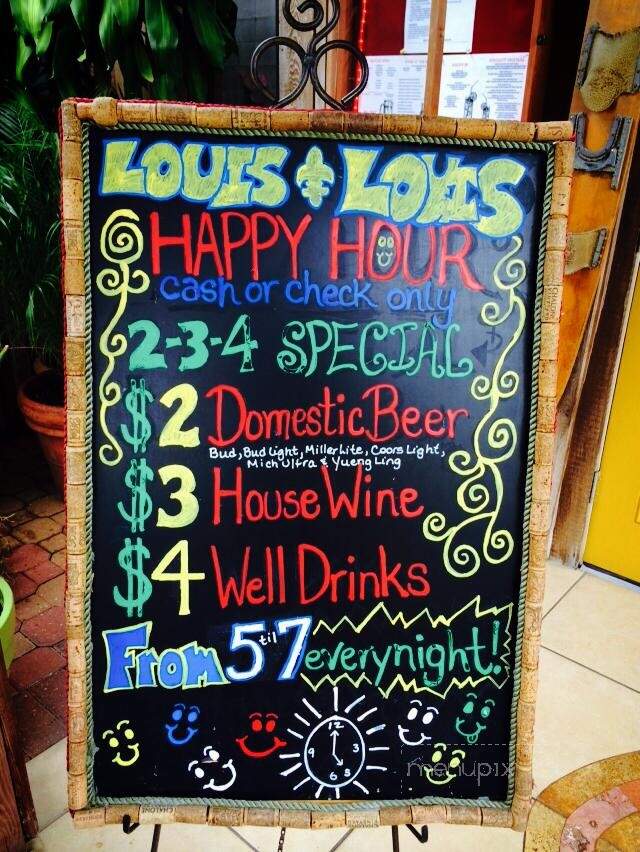 LOUIS LOUIS
HAPPY HOUR
cash or check only
2-3-4 SPECIAL
$2 Domestic Beer
Bud, Bud Light, Miller Lite, Coors Light,
Mich Ultra & YuengLing
$3 House Wine
$4 Well Drinks
From 5 'til 7 everynight!
12
9 3
6 5
menupix